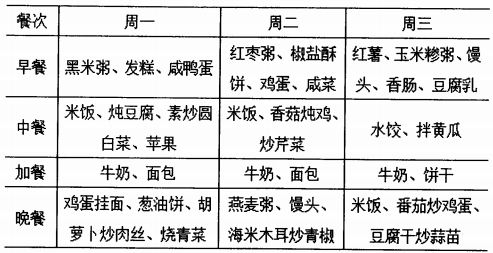 餐次 周一 周二 周三
早餐 黑米粥、发糕、咸鸭蛋 红枣粥、椒盐酥饼、鸡蛋、咸菜 红薯、玉米糁粥、馒头、香肠、豆腐乳
中餐 米饭、炖豆腐、素炒圆白菜、苹果 米饭、香菇炖鸡、炒芹菜 水饺、拌黄瓜
加餐 牛奶、面包 牛奶、面包 牛奶、饼干
晚餐 鸡蛋挂面、葱油饼、胡萝卜炒肉丝、烧青菜 燕麦粥、馒头、海米木耳炒青椒 米饭、番茄炒鸡蛋、豆腐干炒蒜苗